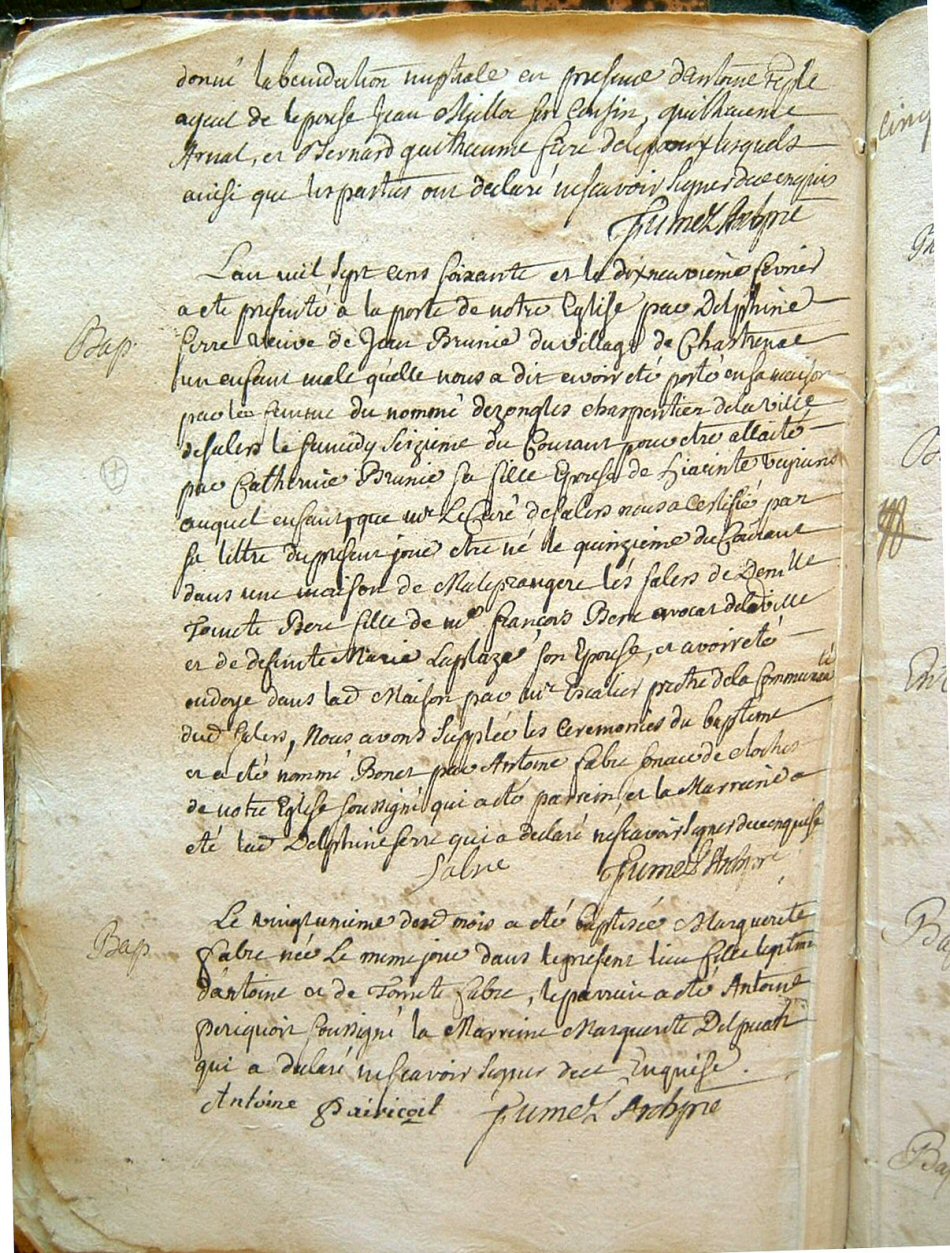 donné la benediction nuptiale en presence d'antoine
ayeul de lepouse Jean Millot son Cousin, guilhaume
Arnal, et Bernard guilhaume frere delepoux lesquels
ainsi que les parties ont declaré ne scavoir signer de ce enquis
Fumel Archpre
L'an mil sept cens soixante et le dixneuvieme fevrier
a eté presenté a la porte de notre Eglise par Delphine
Serre veuve de Jean Brunie du village de Chastrenac
Bap.
un enfant male qu'elle nous a dit avoir eté porté en sa maison
par la femme du nommé dezongles charpentier de la ville
de salers le samedy seizieme du Courant pour etre allaité
par Catherine Brunie sa fille Epouse de Hiacinte
auquel enfant, que mr Le Curé de salers nous a certifié par
sa lettre du present jour etre né le quinzieme du Courant
dans une maison de Malesrangere lès salers de
Toinete Bere fille de me françois Bere avocat de lad ville
et de defunte Marie Laplaze son Epouse, et avoir eté
ondoyé dans lad Maison par mr Escalier pretre de la Communauté
dud salers, Nous avons supplée les ceremonies du bapteme
et a eté nommé Bonet par Antoine fabre soneur de cloches
de notre Eglise soussigné qui a eté parrein et la Marreine a
eté lad Delphine serre qui a declaré ne scavoir signer de ce enquise
fabre Fumel Archpre
Le vingtunieme dud mois a eté baptisée Marguerite
Bap.
fabre née Le meme jour dans le present lieu fille legitime
d'antoine et de Toinete fabre, le parrein a eté Antoine
Periquoit soussigné la Marreine Marguerite Delpuech
qui a declaré ne scavoir signer de ce Enquise.
Antoine Pairicoit Fumel Archpre